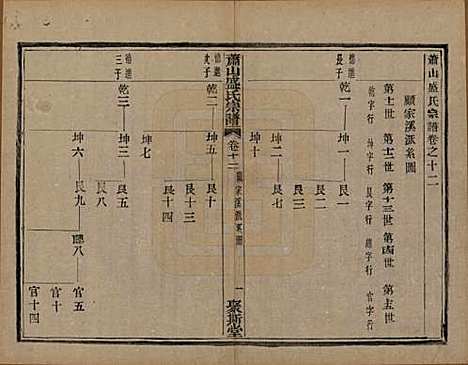 蕭山盛氏宗譜卷之十二
顧家溪派系圖
第十一世 第十二世 第十三世 第十四世 第十五世
乾字行 坤字行 艮字行 聰字行 官字行
德進長子 乾一 坤一 艮一
艮二
艮七
坤二
坤十
蕭山盛氏宗譜 卷十二 顧家溪派系圖 一 聚斯堂
德進次子 乾二 坤五 艮十
艮十三
艮十四
德進三子 乾三 坤三 艮五
艮八
坤六 艮九 聰八 官五
官十
官十四